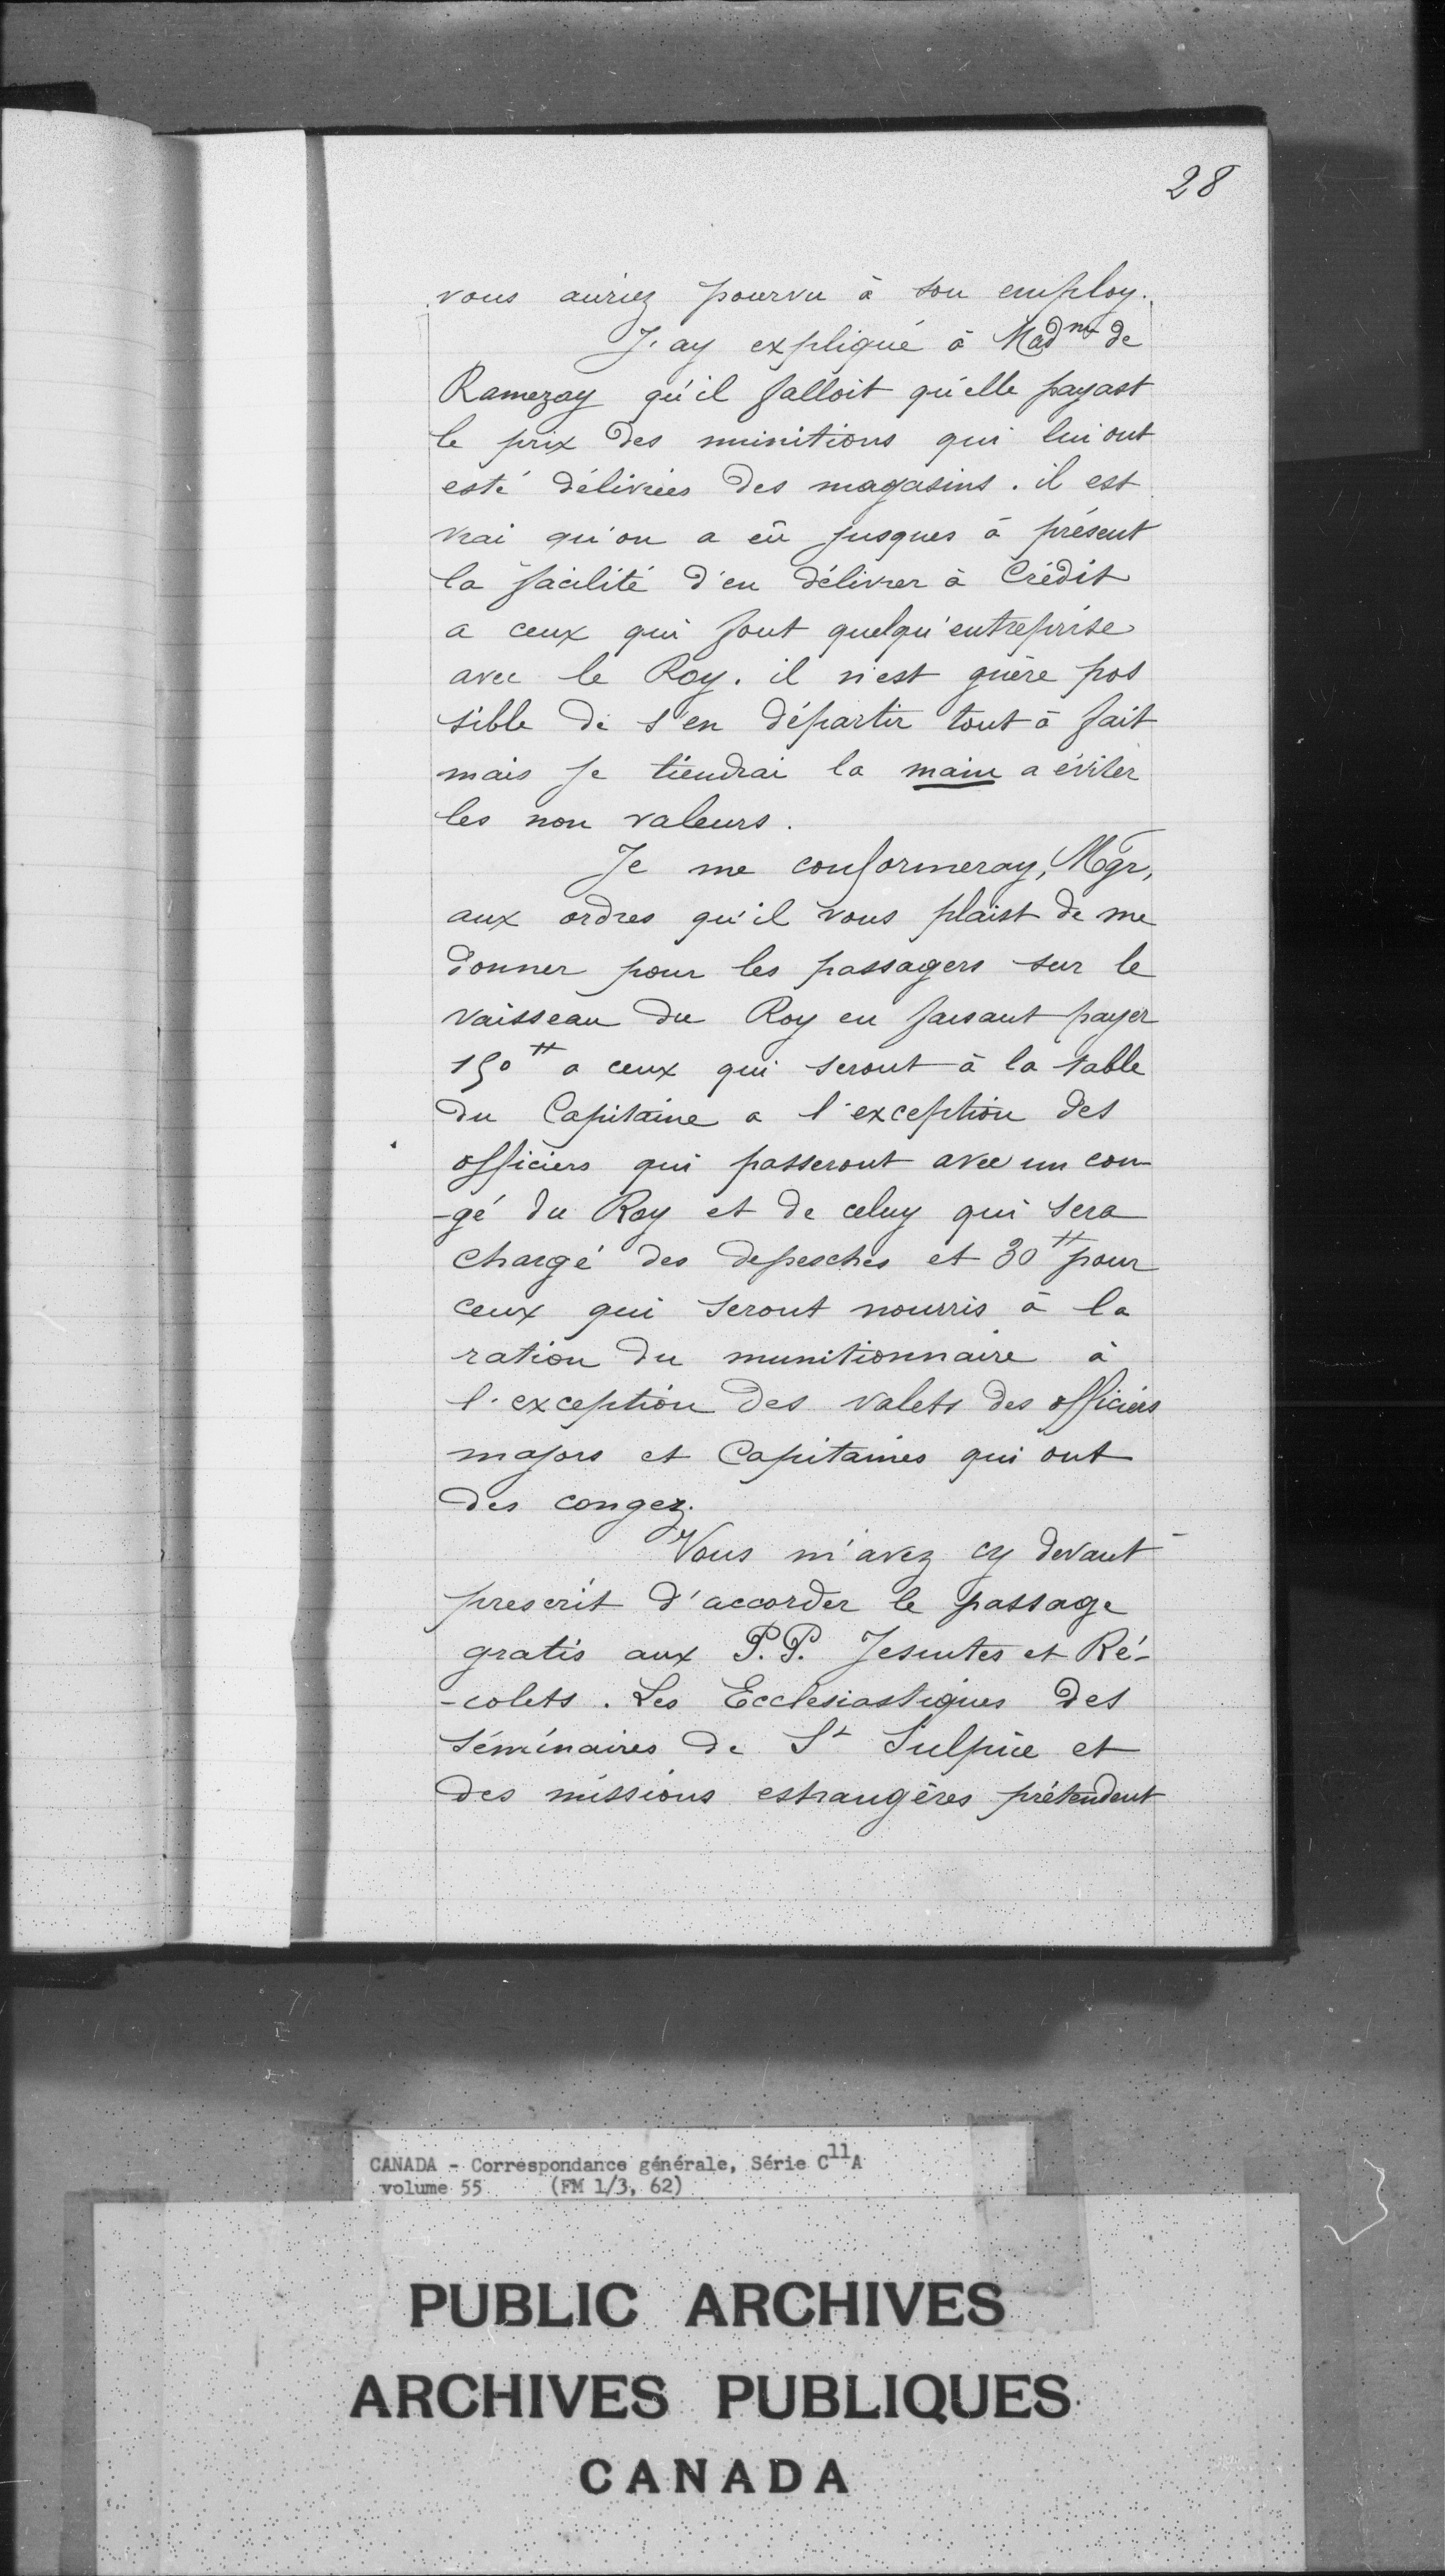 28
vous auriez pourvu à son employ.
J'ay expliqué à Madme de
Ramezay qu'il falloit qu'elle payast
le prix des munitions qui lui ont
esté délivrées des magasins. il est
vrai qu'on a eû jusques à présent
la facilité d'en délivrer à Crédit
a ceux qui font quelqu'entreprise
avec le Roy. il n'est guère pos
sible de s'en départir tout à fait
mais je tiendrai la main a éviter
les non valeurs.
Je me conformeray, Mgr,
aux ordres qu'il vous plaist de me
donner pour les passagers sur le
vaisseau du Roy en faisant payer
150# a ceux qui seront à la table
du Capitaine a l'exception des
officiers qui passeront avec un con
-gé du Roy et de celuy qui sera
chargé des depesches et 30# pour
ceux qui seront nourris à la
ration du munitionnaire à
l'exception des valets des officiers
majors et Capitaines qui ont
des congez.
Vous m'avez cy devant
prescrit d'accorder le passage
gratis aux P.P. Jesuites et Ré-
-colets. Les Ecclesiastiques des
séminaires de St Sulpice et
des missions estrangères prétendent
CANADA - Correspondance générale, Série C11A
volume 55 (FM 1/3, 62)
PUBLIC ARCHIVES
ARCHIVES PUBLIQUES
CANADA